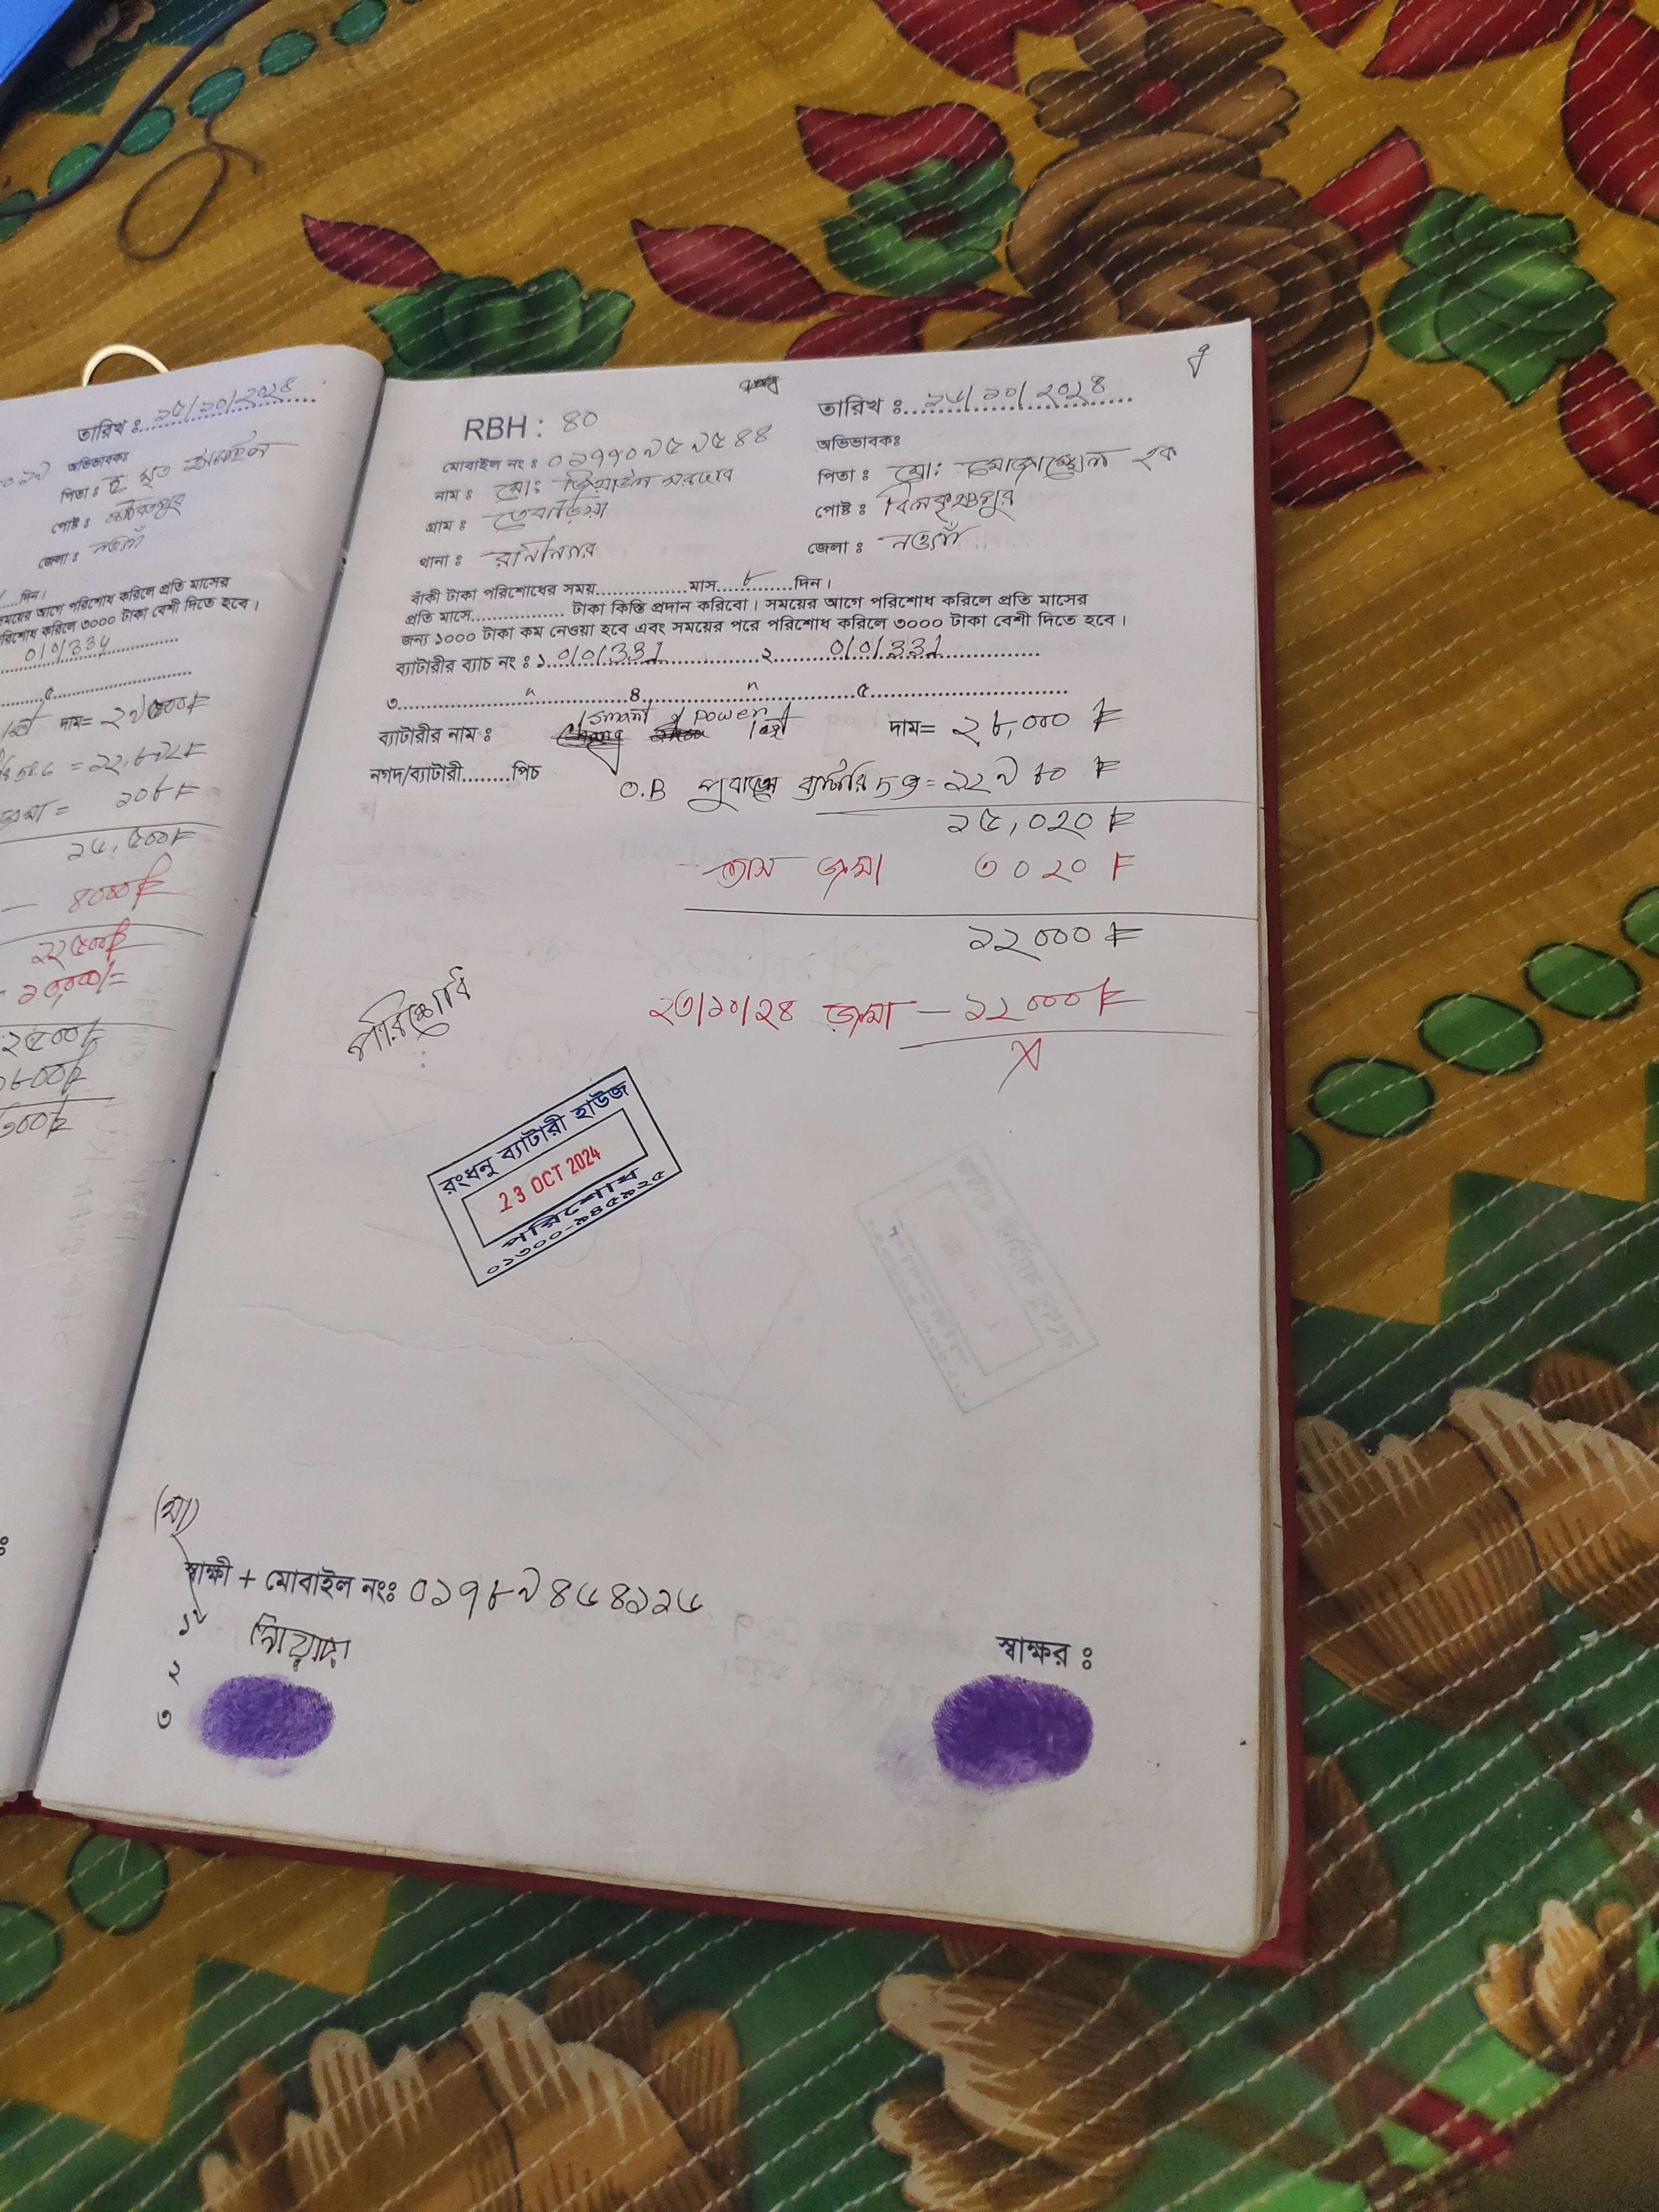 তারিখ ঃ ১৫/১০/২০২৪
অভিভাবকঃ
পিতা ঃ মৃত
পোষ্ট ঃ
জেলা ঃ নওগাঁ
দিন।
সময়ের আগে পরিশোধ করিলে প্রতি মাসের
পরিশোধ করিলে ৩০০০ টাকা বেশী দিতে হবে।
0101334
৫
দাম=
জমা = ২০৮৳
১৬,৫০০৳
— ৪০০০৳
১২৫০০৳
১০,০০০/=
২৫০০৳
RBH : ৪০
তারিখ ঃ ১৬/১০/২০২৪
মোবাইল নং ঃ ০১৭৭০৯৫৯৫৪৪
অভিভাবকঃ
নাম ঃ মো: জিয়াউল সরদার
পিতা ঃ মো: মোজাম্মেল হক
গ্রাম ঃ তেবাড়িয়া
পোষ্ট ঃ বিলকৃষ্ণপুর
থানা ঃ রানীনগর
জেলা ঃ নওগাঁ
বাঁকী টাকা পরিশোধের সময়................মাস....৮....দিন।
প্রতি মাসে................ টাকা কিস্তি প্রদান করিবো। সময়ের আগে পরিশোধ করিলে প্রতি মাসের
জন্য ১০০০ টাকা কম নেওয়া হবে এবং সময়ের পরে পরিশোধ করিলে ৩০০০ টাকা বেশী দিতে হবে।
ব্যাটারীর ব্যাচ নং ঃ ১. 0101331 ২. 0101331
৩. " ৪. " ৫.
ব্যাটারীর নাম ঃ Smart Power দাম= ২৮,০০০ ৳
নগদ/ব্যাটারী........পিচ O.B পুরাতন ব্যাটারি ৮৭ = ১২৯৮০ ৳
১৫,০২০ ৳
জমা ৩০২০ ৳
১২০০০ ৳
পরিশোধ
২৩/১০/২৪ জমা — ১২০০০ ৳
X
রংধনু ব্যাটারী হাউজ
23 OCT 2024
পরিশোধ
০১৩০০-৯৪৫৯২৫
(মা)
স্বাক্ষী + মোবাইল নংঃ ০১৭৮৯৪৬৪১২৬
১
২
৩
স্বাক্ষর ঃ